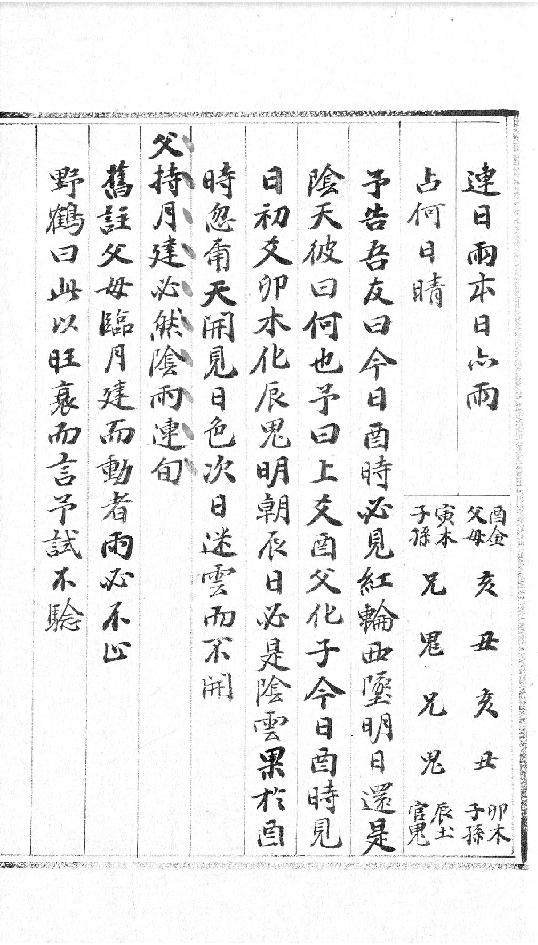 連日雨本日亦雨
占何日晴
酉金
父母
亥丑亥丑
卯木
子孫
寅木
子孫
兄鬼兄鬼
辰土
官鬼
予告吾友曰今日酉時必見紅輪西墜明日還是
陰天彼曰何也予曰上爻酉父化子今日酉時見
日初爻卯木化辰鬼明朝辰日必是陰雲果於酉
時忽爾天開見日色次日迷雲而不開
父持月建必然陰雨連旬
舊註父母臨月建而動者雨必不止
野鶴曰此以旺衰而言予試不騐